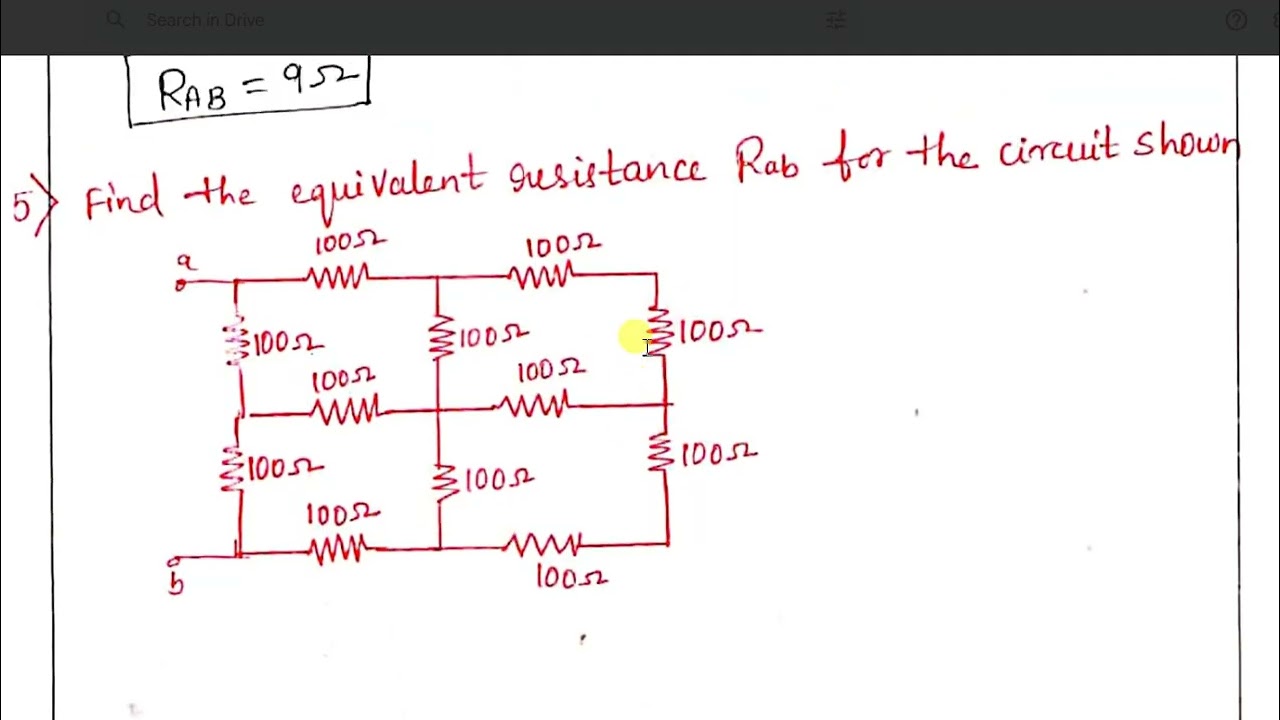 Search in Drive
RAB = 9Ω
5) Find the equivalent resistance Rab for the circuit shown
100Ω 100Ω
a
100Ω 100Ω 100Ω
100Ω 100Ω
100Ω 100Ω 100Ω
100Ω
b 100Ω